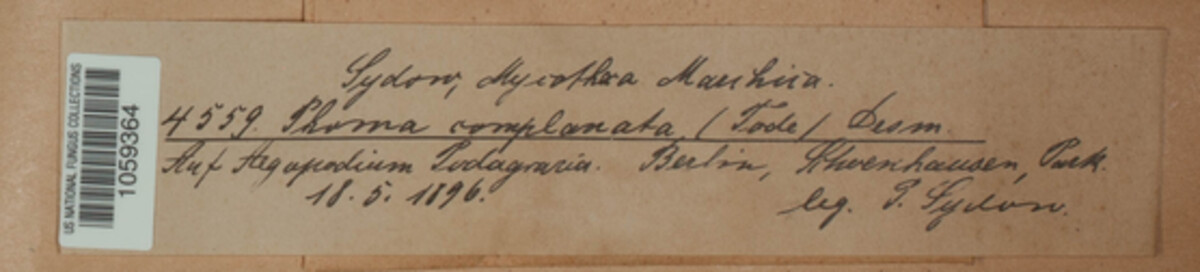 US NATIONAL FUNGUS COLLECTIONS
1059364
Sydow, Mycotheca Marchica.
4559. Phoma complanata (Tode) Desm.
Auf Aegopodium Podagraria. Berlin, Park.
18.5.1896. leg. P. Sydow.